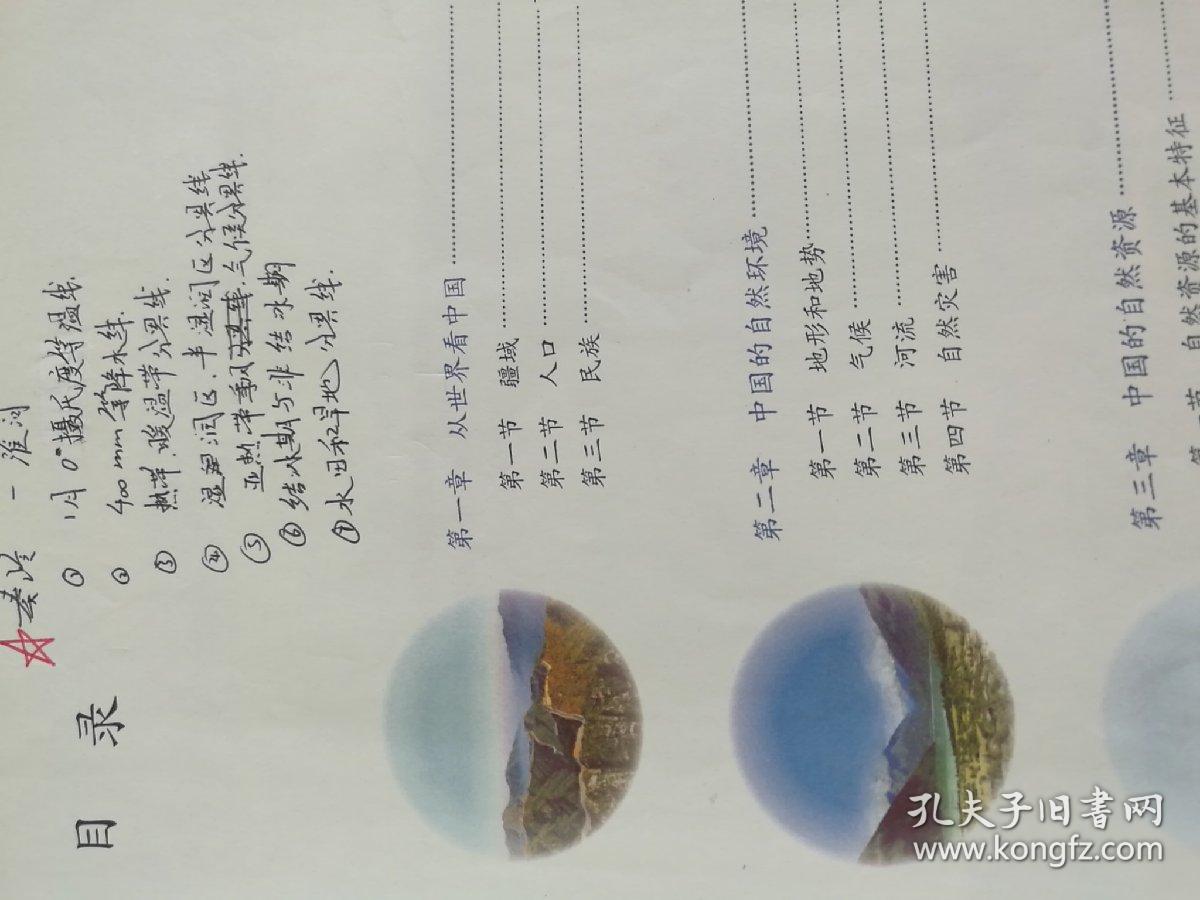 ☆秦岭 — 淮河
① 1月0°摄氏度等温线.
② 400mm等降水线.
③ 热带.暖温带分界线.
④ 湿润区.半湿润区分界线
⑤ 亚热带季风 气候分界线.
⑥ 结冰期与非结冰期
⑦ 水田和旱地分界线.
目 录
第一章 从世界看中国
第一节 疆域
第二节 人口
第三节 民族
第二章 中国的自然环境
第一节 地形和地势
第二节 气候
第三节 河流
第四节 自然灾害
第三章 中国的自然资源
第一节 自然资源的基本特征
孔夫子旧书网
www.kongfz.com